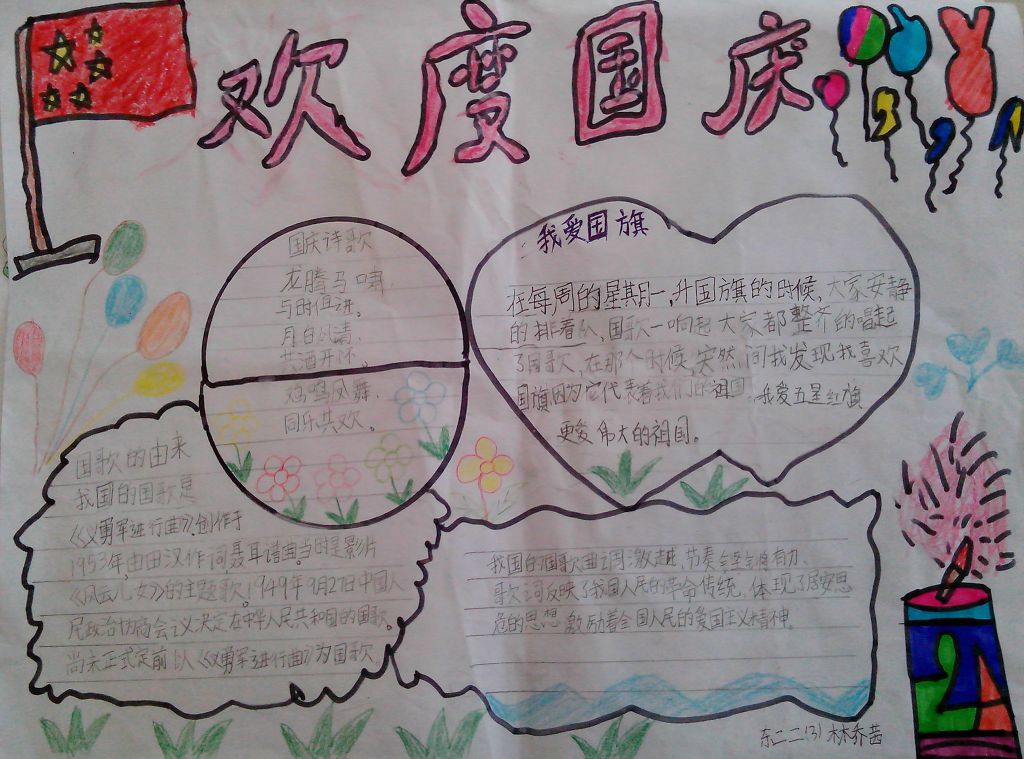 欢度国庆
国庆诗歌
龙腾马啸,
与时俱进。
月白风清,
共酒开怀。
鸡鸣凤舞,
同乐共欢。
我爱国旗
在每周的星期一,升国旗的时候,大家安静
的排着队,国歌一响起大家都整齐的唱起
了国歌,在那个时候,突然间我发现我喜欢
国旗因为它代表着我们的祖国。我爱五星红旗
更爱伟大的祖国。
国歌的由来
我国的国歌是
《义勇军进行曲》,创作于
1953年,由田汉作词聂耳谱曲。当时是影片
《风云儿女》的主题歌。1949年9月27日中国人
民政治协商会议决定在中华人民共和国的国歌
尚未正式定前以《义勇军进行曲》为国歌
我国的国歌曲调激进,节奏铿锵有力、
歌词反映了我国人民的革命传统,体现了居安思
危的思想 激励着全国人民的爱国主义精神。
东二二(3) 林乔茜